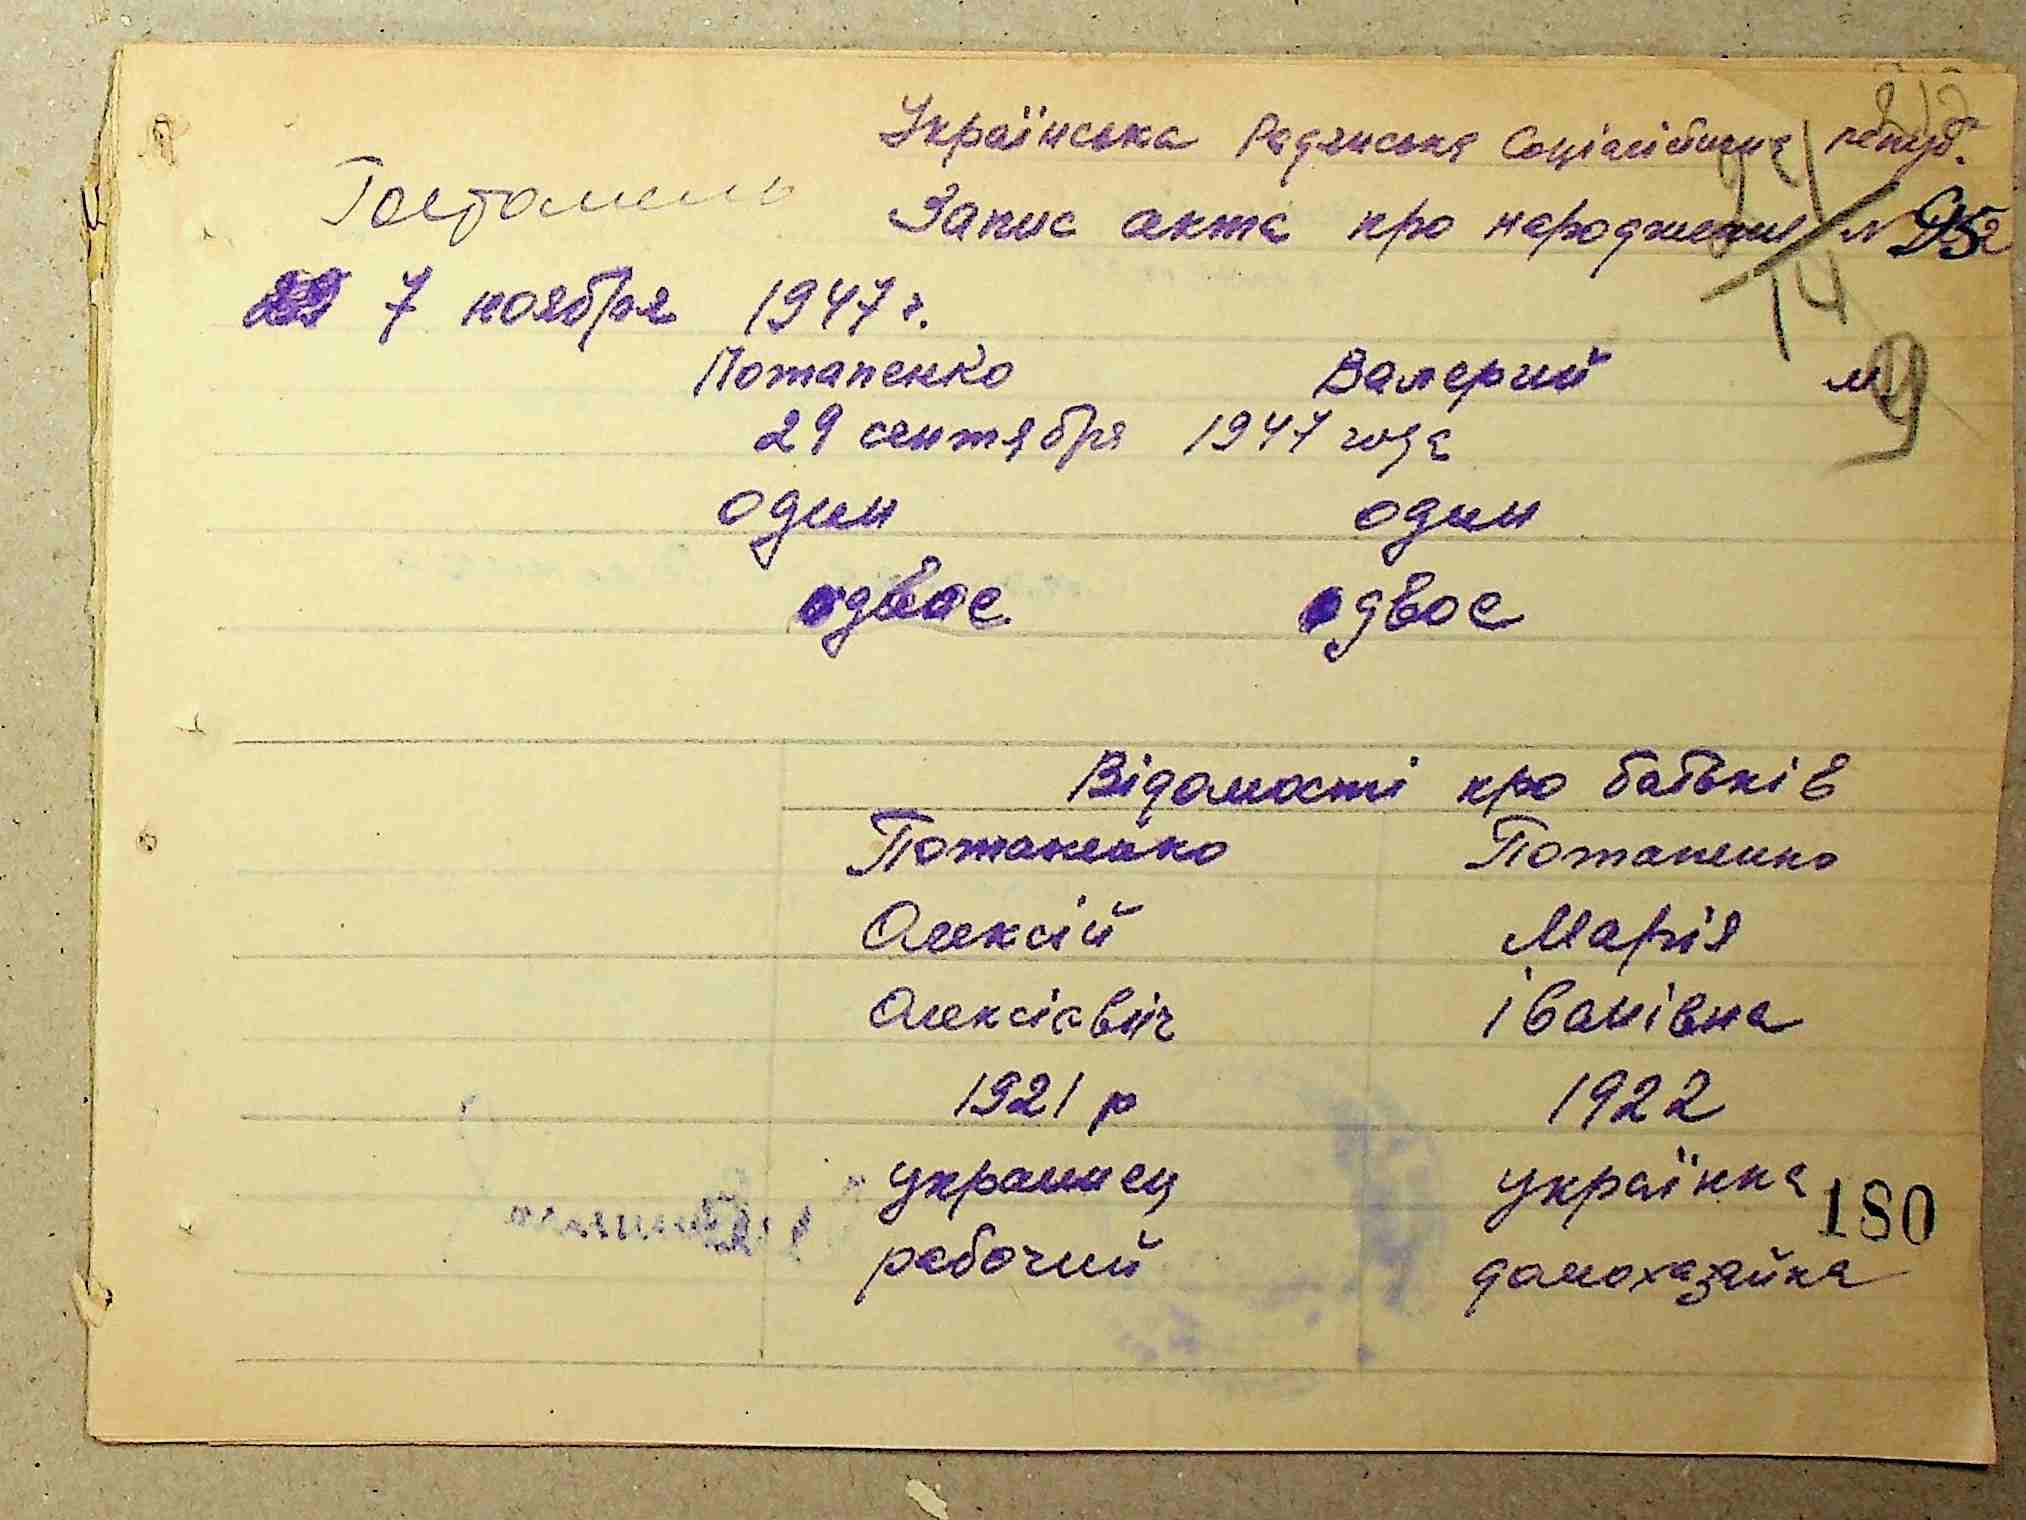 Українська Радянська Соціалістична репуб.
Гостомель
Запис акта про народження №
7 ноября 1947 г.
Потапенко Валерий м
29 сентября 1947 года
один один
двое двое
Відомості про батьків
Потапенко Потапенко
Олексій Марія
Олексієвич Іванівна
1921 р 1922
украинец українка
180
рабочий домохазяйка